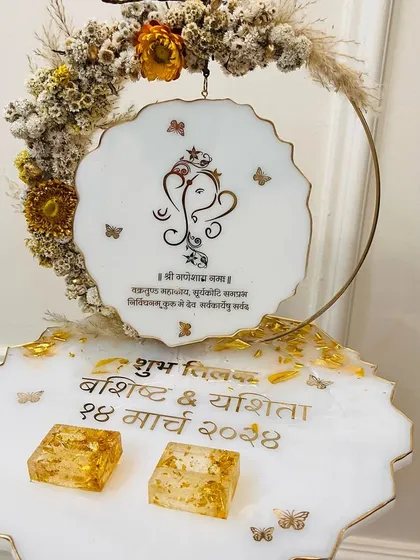 ॥ श्री गणेशाय नमः॥
वक्रतुण्ड महाकाय, सूर्यकोटि समप्रभ
निर्विघ्नम् कुरु मे देव सर्वकार्येषु सर्वदा
शुभ तिलक
बशिष्ट & यशिता
१४ मार्च २०२४